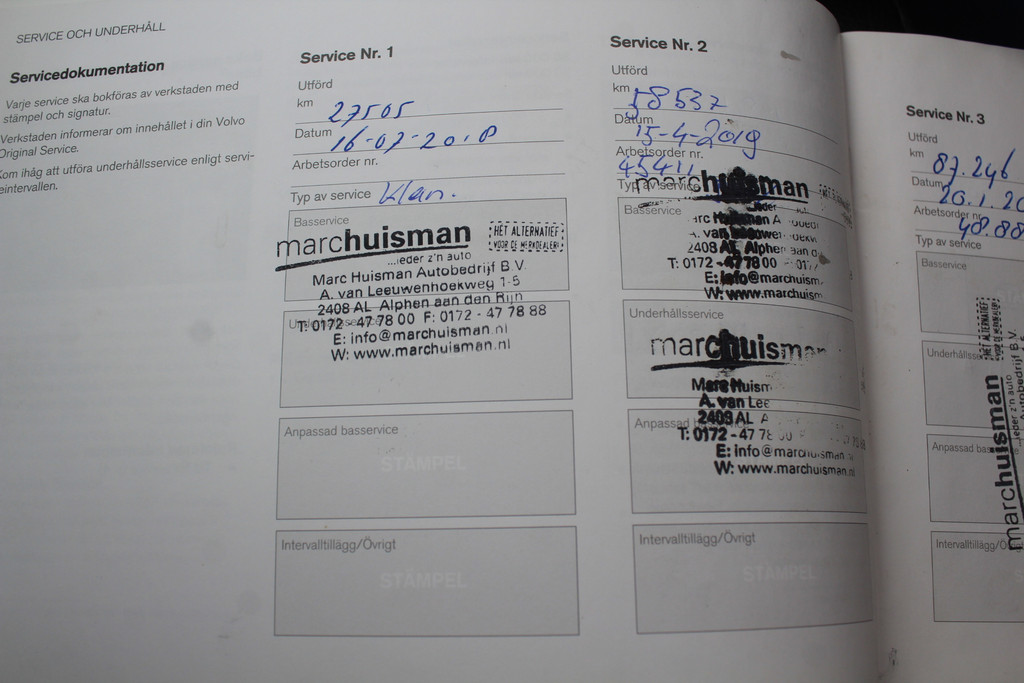 SERVICE OCH UNDERHÅLL
Servicedokumentation
Varje service ska bokföras av verkstaden med
stämpel och signatur.
Verkstaden informerar om innehållet i din Volvo
Original Service.
Kom ihåg att utföra underhållsservice enligt servi-
eintervallen.
Service Nr. 1
Utförd
km 27505
Datum 16-07-2018
Arbetsorder nr.
Typ av service Klan.
Basservice
marchuisman
HÉT ALTERNATIEF
VOOR DE MERKDEALER!
...ieder z'n auto
Marc Huisman Autobedrijf B.V.
A. van Leeuwenhoekweg 1-5
2408 AL Alphen aan den Rijn
T: 0172 - 47 78 00 F: 0172 - 47 78 88
E: info@marchuisman.nl
W: www.marchuisman.nl
Anpassad basservice
STÄMPEL
Intervalltillägg/Övrigt
STÄMPEL
Service Nr. 2
Utförd
km 58537
Datum 15-4-2019
Arbetsorder nr.
45411
Typ av service
marchuisman
Basservice
2408 AL Alphen aan d
T: 0172 - 47 78 00
E: info@marchuism
W: www.marchuism
Underhållsservice
marchuisman
Marc Huism
A. van Lee
2408 AL A
Anpassad
T: 0172 - 47 78
E: info@marchuisman
W: www.marchuisman.nl
Intervalltillägg/Övrigt
STÄMPEL
Service Nr. 3
Utförd
km 87.246
Datum 20.1.20
Arbetsorder nr
48.88
Typ av service
Basservice
Underhållsse
Anpassad bas
Intervalltillägg/Ö
marchuisman
...ieder z'n auto
HÉT ALTERNATIEF
VOOR DE MERKDEALER!